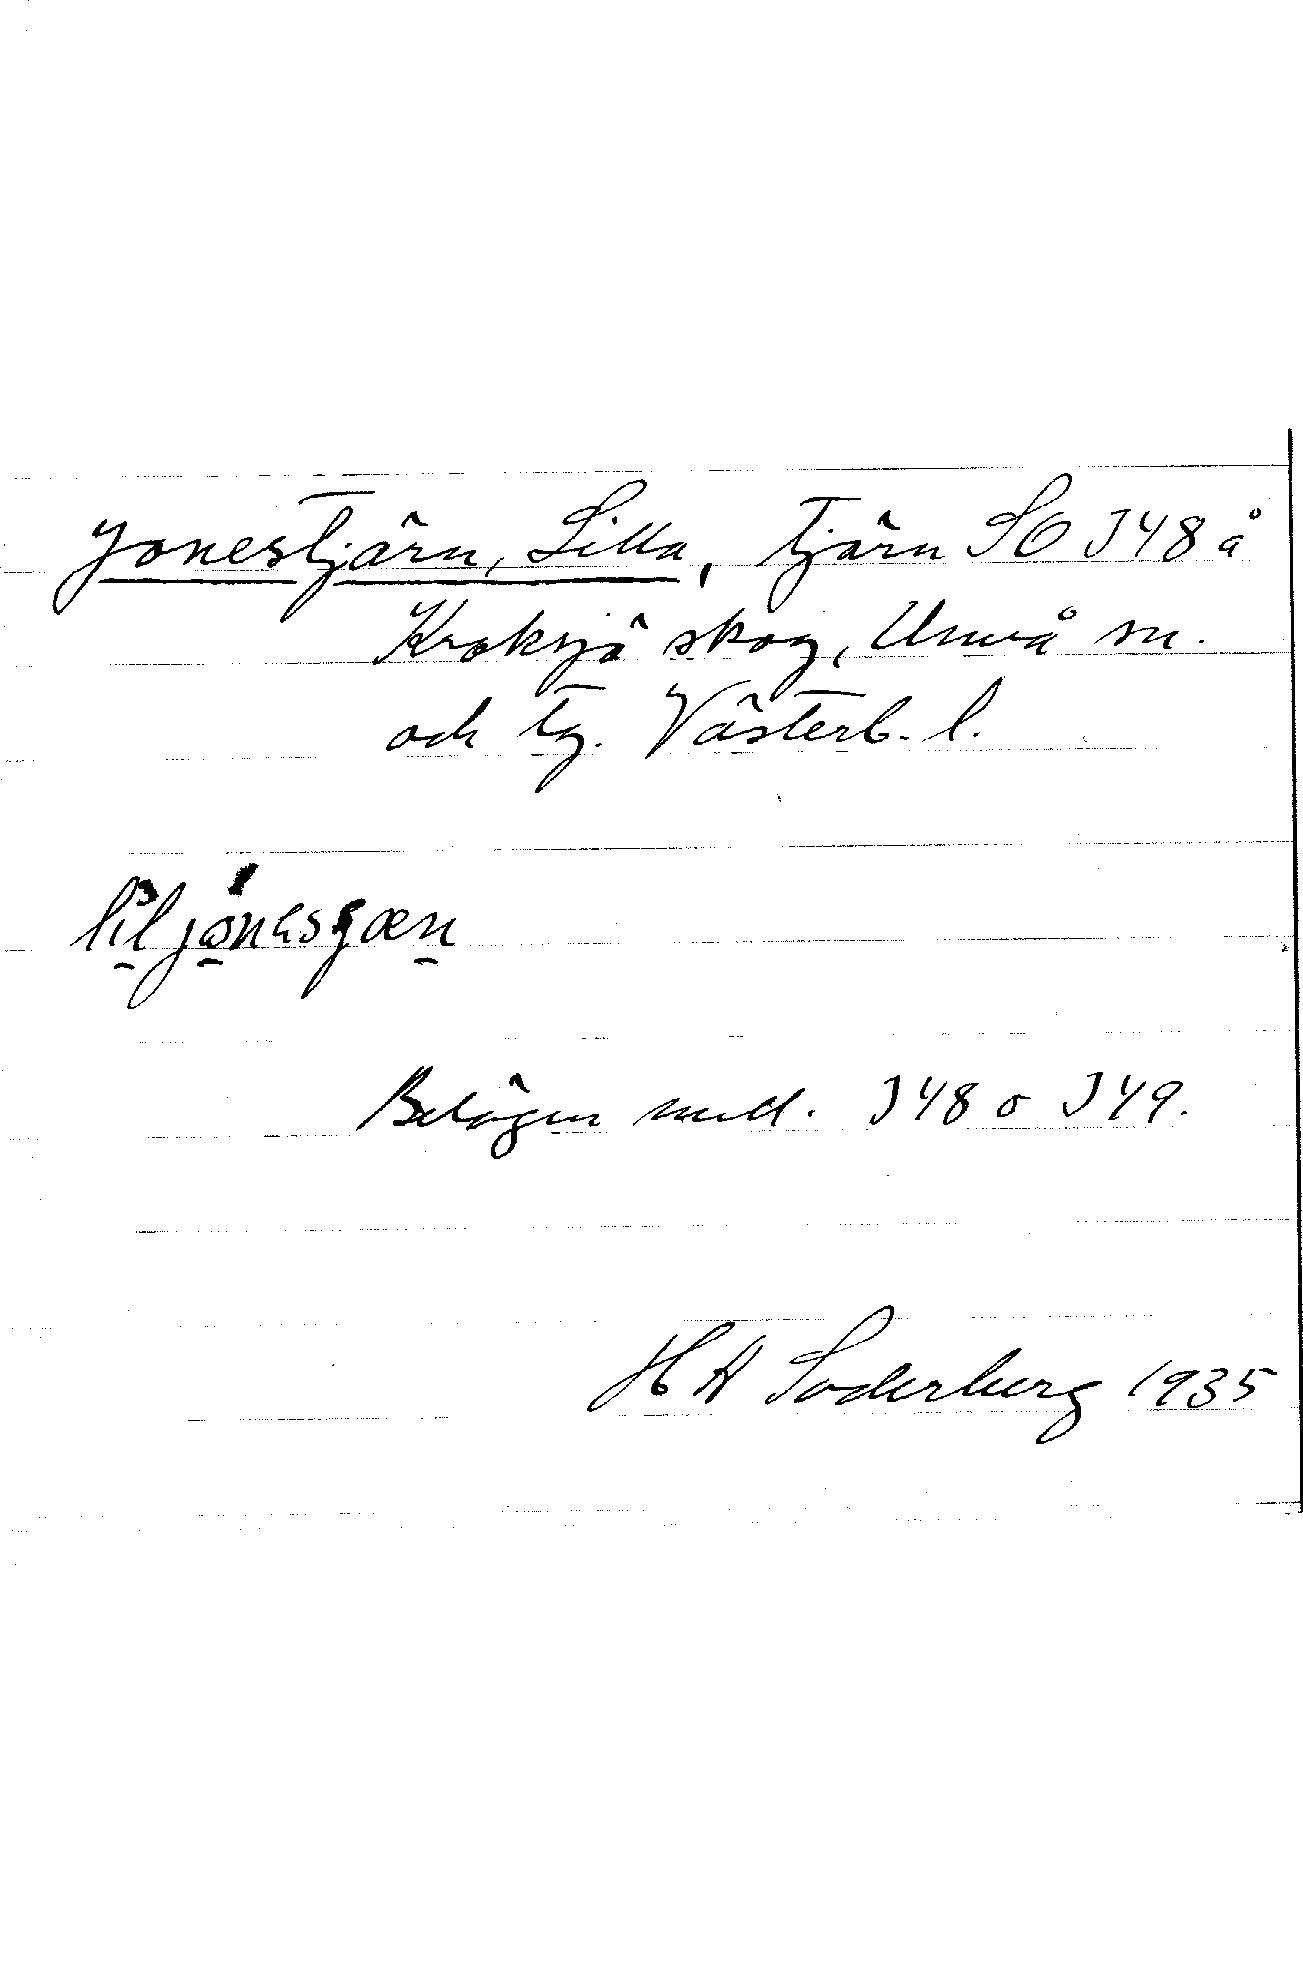 Jonestjärn, Lilla, tjärn SO J48 å
Kroksjö skog, Umeå sn.
och tg. Västerb. l.
lil jonesҫœn
Belägen mell. J48 o J49.
H A Söderberg 1935